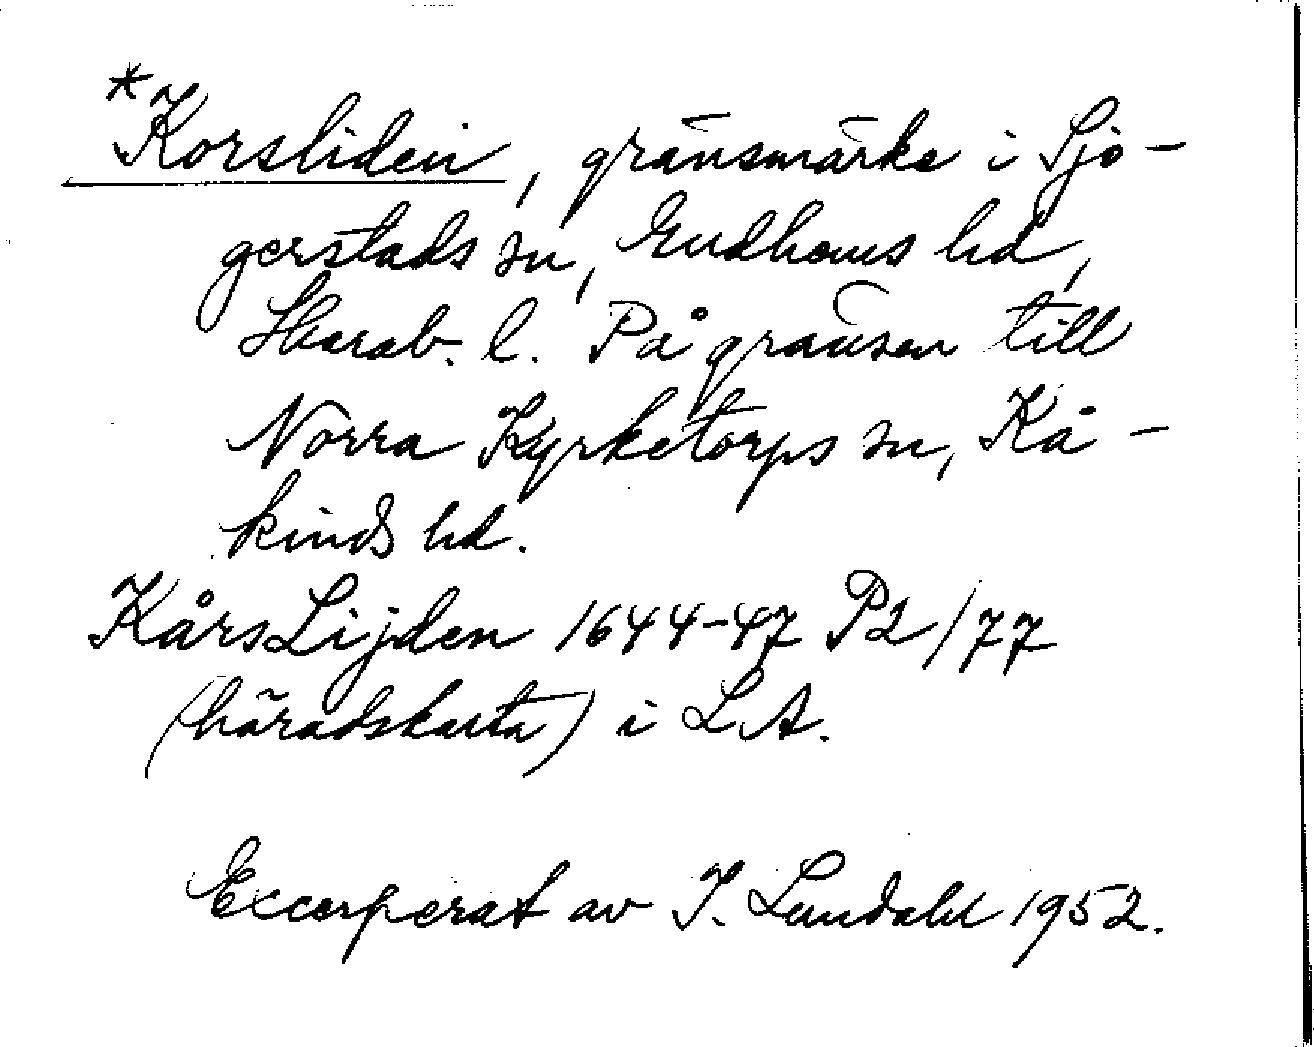 *Korsliden, gränsmärke i Sjo-
gerstads sn, Gudhems hd,
Skarab. l. På gränsen till
Norra Kyrketorps sn, Kå-
kinds hd.
KårsLijden 1644-47 P2/77
(häradskarta) i LA.
Excerperat av I. Lundahl 1952.